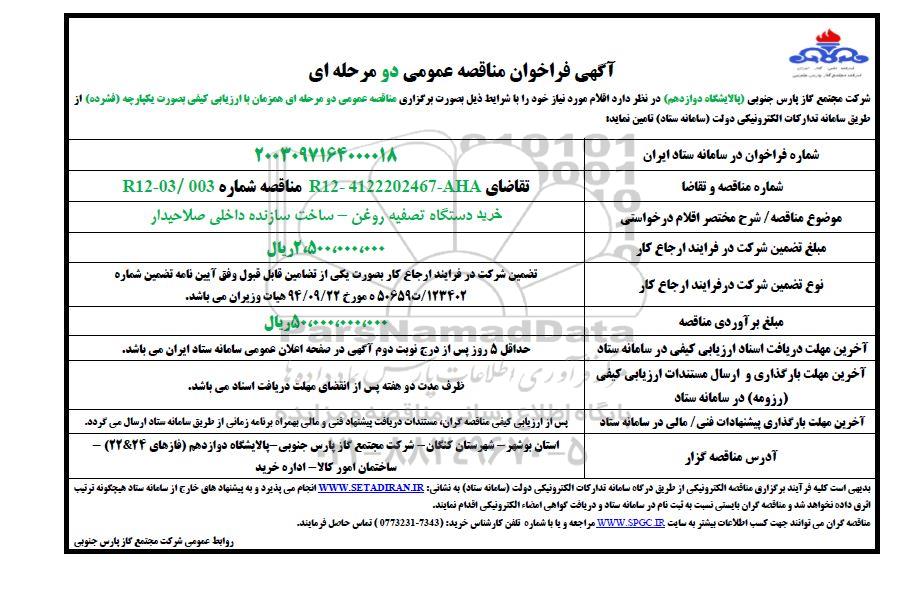 شرکت ملی گاز ایران
شرکت مجتمع گاز پارس جنوبی
آگهی فراخوان مناقصه عمومی دو مرحله ای
شرکت مجتمع گاز پارس جنوبی (پالایشگاه دوازدهم) در نظر دارد اقلام مورد نیاز خود را با شرایط ذیل بصورت برگزاری مناقصه عمومی دو مرحله ای همزمان با ارزیابی کیفی بصورت یکپارچه (فشرده) از
طریق سامانه تدارکات الکترونیکی دولت (سامانه ستاد) تامین نماید:
شماره فراخوان در سامانه ستاد ایران
۲۰۰۳۰۹۷۱۶۴۰۰۰۰۱۸
شماره مناقصه و تقاضا
تقاضای R12- 4122202467-AHA مناقصه شماره R12-03/ 003
موضوع مناقصه/ شرح مختصر اقلام درخواستی
خرید دستگاه تصفیه روغن – ساخت سازنده داخلی صلاحیدار
مبلغ تضمین شرکت در فرایند ارجاع کار
۲،۵۰۰،۰۰۰،۰۰۰ریال
نوع تضمین شرکت درفرایند ارجاع کار
تضمین شرکت در فرایند ارجاع کار بصورت یکی از تضامین قابل قبول وفق آیین نامه تضمین شماره
۱۲۳۴۰۲/ت۵۰۶۵۹ ه مورخ ۹۴/۰۹/۲۲ هیات وزیران می باشد.
مبلغ برآوردی مناقصه
۵۰،۰۰۰،۰۰۰،۰۰۰ریال
آخرین مهلت دریافت اسناد ارزیابی کیفی در سامانه ستاد
حداقل ۵ روز پس از درج نوبت دوم آگهی در صفحه اعلان عمومی سامانه ستاد ایران می باشد.
آخرین مهلت بارگذاری و ارسال مستندات ارزیابی کیفی
(رزومه) در سامانه ستاد
ظرف مدت دو هفته پس از انقضای مهلت دریافت اسناد می باشد.
آخرین مهلت بارگذاری پیشنهادات فنی/ مالی در سامانه ستاد
پس از ارزیابی کیفی مناقصه گران، مستندات دریافت پیشنهاد فنی و مالی بهمراه برنامه زمانی از طریق سامانه ستاد ارسال می گردد.
آدرس مناقصه گزار
استان بوشهر– شهرستان کنگان– شرکت مجتمع گاز پارس جنوبی–پالایشگاه دوازدهم (فازهای ۲۴&۲۲) –
ساختمان امور کالا– اداره خرید
بدیهی است کلیه فرآیند برگزاری مناقصه الکترونیکی از طریق درگاه سامانه تدارکات الکترونیکی دولت (سامانه ستاد) به نشانی: WWW.SETADIRAN.IR انجام می پذیرد و به پیشنهاد های خارج از سامانه ستاد هیچگونه ترتیب
اثری داده نخواهد شد و مناقصه گران بایستی نسبت به ثبت نام در سامانه ستاد و دریافت گواهی امضاء الکترونیکی اقدام نمایند.
مناقصه گران می توانند جهت کسب اطلاعات بیشتر به سایت WWW.SPGC.IR مراجعه و یا با شماره تلفن کارشناس خرید: (7343-0773231) تماس حاصل فرمایند.
روابط عمومی شرکت مجتمع گاز پارس جنوبی
ParsNamadData
پایگاه اطلاع رسانی مناقصه و مزایده
۰۲۱-۸۸۳۴۹۶۷۰-۵